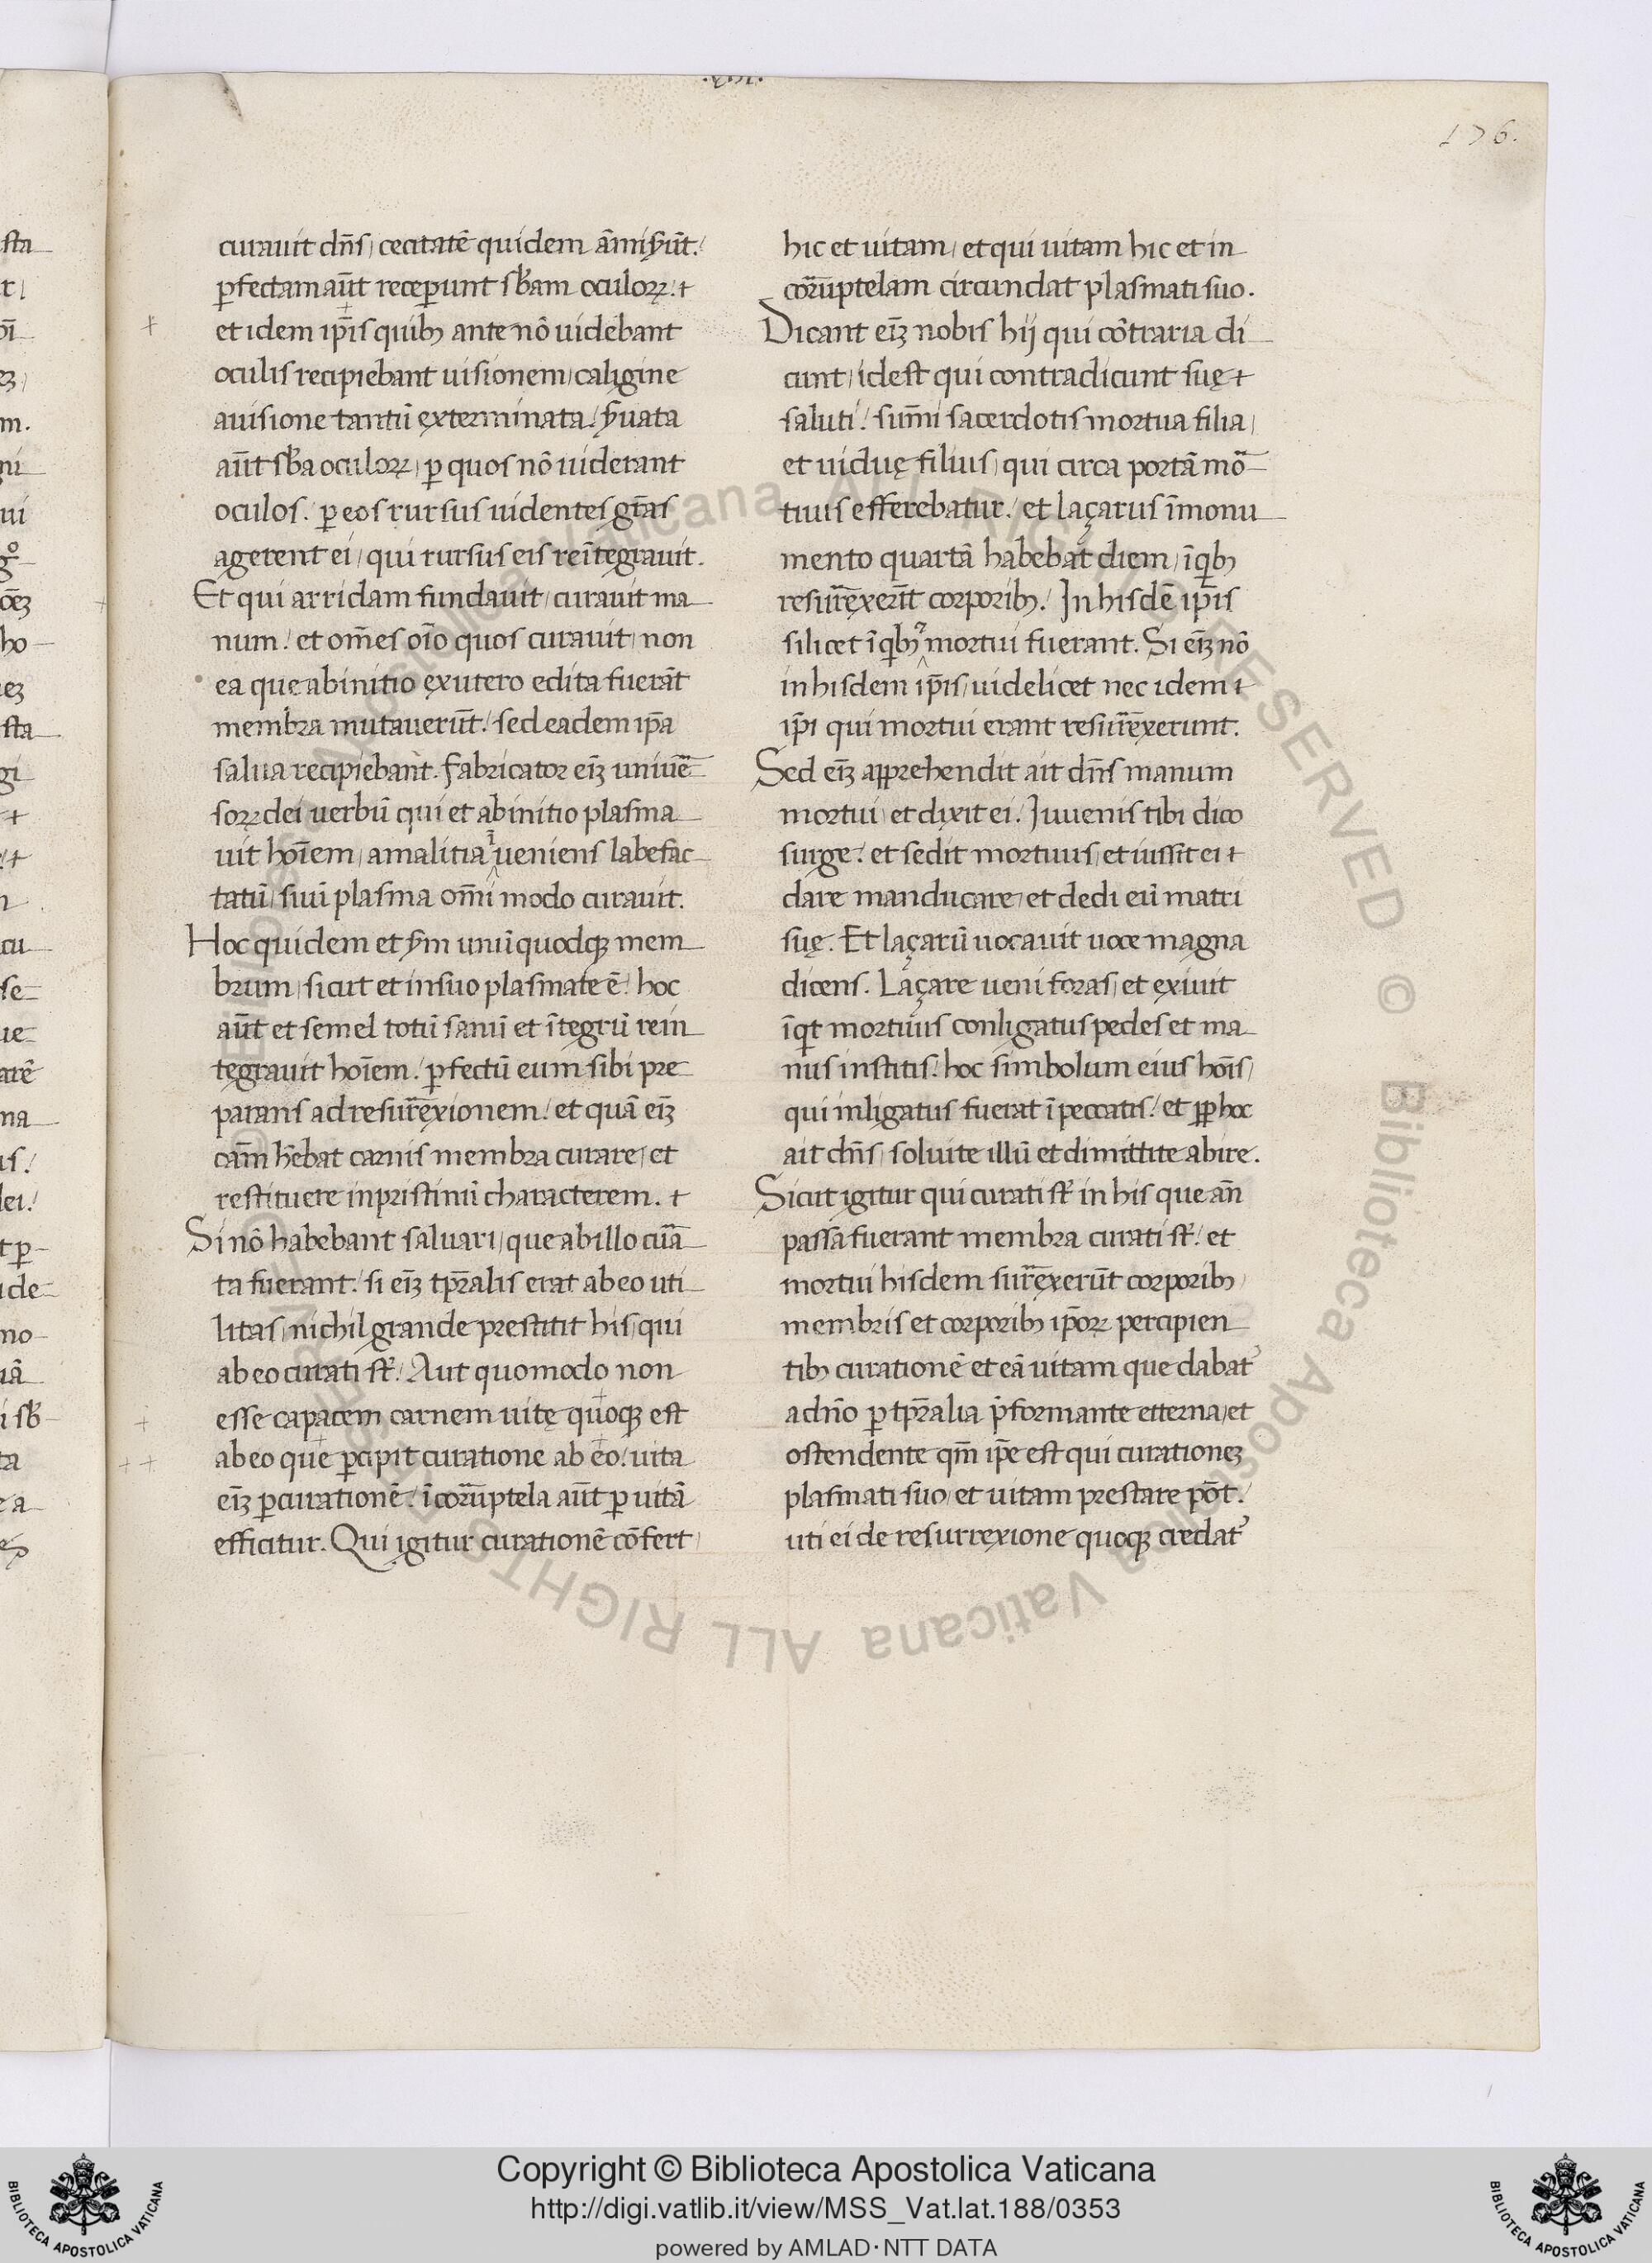 176.
curauit dn̄s, cecitatē quidem āmiẜūt.
ꝑfectam aūt receꝑunt sb̄am oculoꝝ.
et idem ip̄is quibꝫ ante nō uidebant
oculis recipiebant uisionem, caligine
a uisione tantū exterminata. ẜuata
aūt sb̄a oculoꝝ, ꝑ quos nō uiderant
oculos. ꝑ eos rursus uidentes gr̄as
agerent ei, qui rursus eis reītegrauit.
Et qui arridam fundauit, curauit ma
num. et om̄es oīo quos curauit, non
ea que ab initio ex utero edita fuerāt
membra mutauerūt. sed eadem ip̄a
salua recipiebant. fabricator eīꝫ uniūe
soꝝ dei uerbū qui et ab initio plasma
uit hoīem, a malitia ueniens labefac
tatū, suū plasma om̄i modo curauit.
Hoc quidem et ẜm unūquodqꝫ mem
brum, sicut et in suo plasmate ē. hoc
aūt et semel totū sanū et ītegrū rein
tegrauit hoīem. ꝑfectū eum sibi pre
parans ad resur̄exionem. et quā eīꝫ
cām hēbat carnis membra curare, et
restituere in pristinū characterem.
Si nō habebant saluari, que ab illo cur̄a
ta fuerant. si eīꝫ tp̄ralis erat ab eo uti
litas, nichil grande prestitit his, qui
ab eo curati st̄. Aut quomodo non
esse capacem carnem uitę quoqꝫ est
ab eo que ꝑcipit curatione ab eo. uita
eīꝫ ꝑ curationē. īcor̄uptela aūt ꝑ uitā
efficitur. Qui igitur curationē cōfert,
hic et uitam, et qui uitam hic et in
cor̄uptelam circundat plasmati suo.
Dicant eīꝫ nobis hij qui cōtraria di
cunt, idest qui contradicunt suę
saluti. sum̄i sacerdotis mortua filia,
et uiduę filius, qui circa portā mor̄
tuus efferebatur. et laçarus ī monu
mento quartā habebat diem, ī qͥbꝫ
resur̄exerūt corporibꝫ. In hisdē ip̄is
silicet ī qͥbꝫ mortui fuerant. Si eīꝫ nō
in hisdem ip̄is, uidelicet nec idem
ip̄i qui mortui erant resur̄exerunt.
Sed eīꝫ apprehendit ait dn̄s manum
mortui, et dixit ei. Iuuenis tibi dico
surge. et sedit mortuus, et iussit ei
dare manducare, et dedi eū matri
suę. Et laçarū uocauit uoce magna
dicens. Laçare ueni foras, et exiuit
īqͥt mortuus conligatus pedes et ma
nus institis. hoc simbolum eius hoīs,
qui inligatus fuerat ī peccatis. et ꝓp hoc
ait dn̄s, soluite illū et dimittite abire.
Sicut igitur qui curati st̄ in his que an̄
passa fuerant membra curati st̄. et
mortui hisdem sur̄exerūt corporibꝫ,
membris et corporibꝫ ip̄oꝝ percipien
tibꝫ curationē et eā uitam que dabat᷑
a dn̄o ꝑ tp̄ralia p̄formante etterna, et
ostendente qm̄ ip̄e est qui curationeꝫ
plasmati suo, et uitam prestare pōt.
uti ei de resurrexione quoqꝫ credat᷑
Copyright © Biblioteca Apostolica Vaticana
http://digi.vatlib.it/view/MSS_Vat.lat.188/0353
powered by AMLAD·NTT DATA